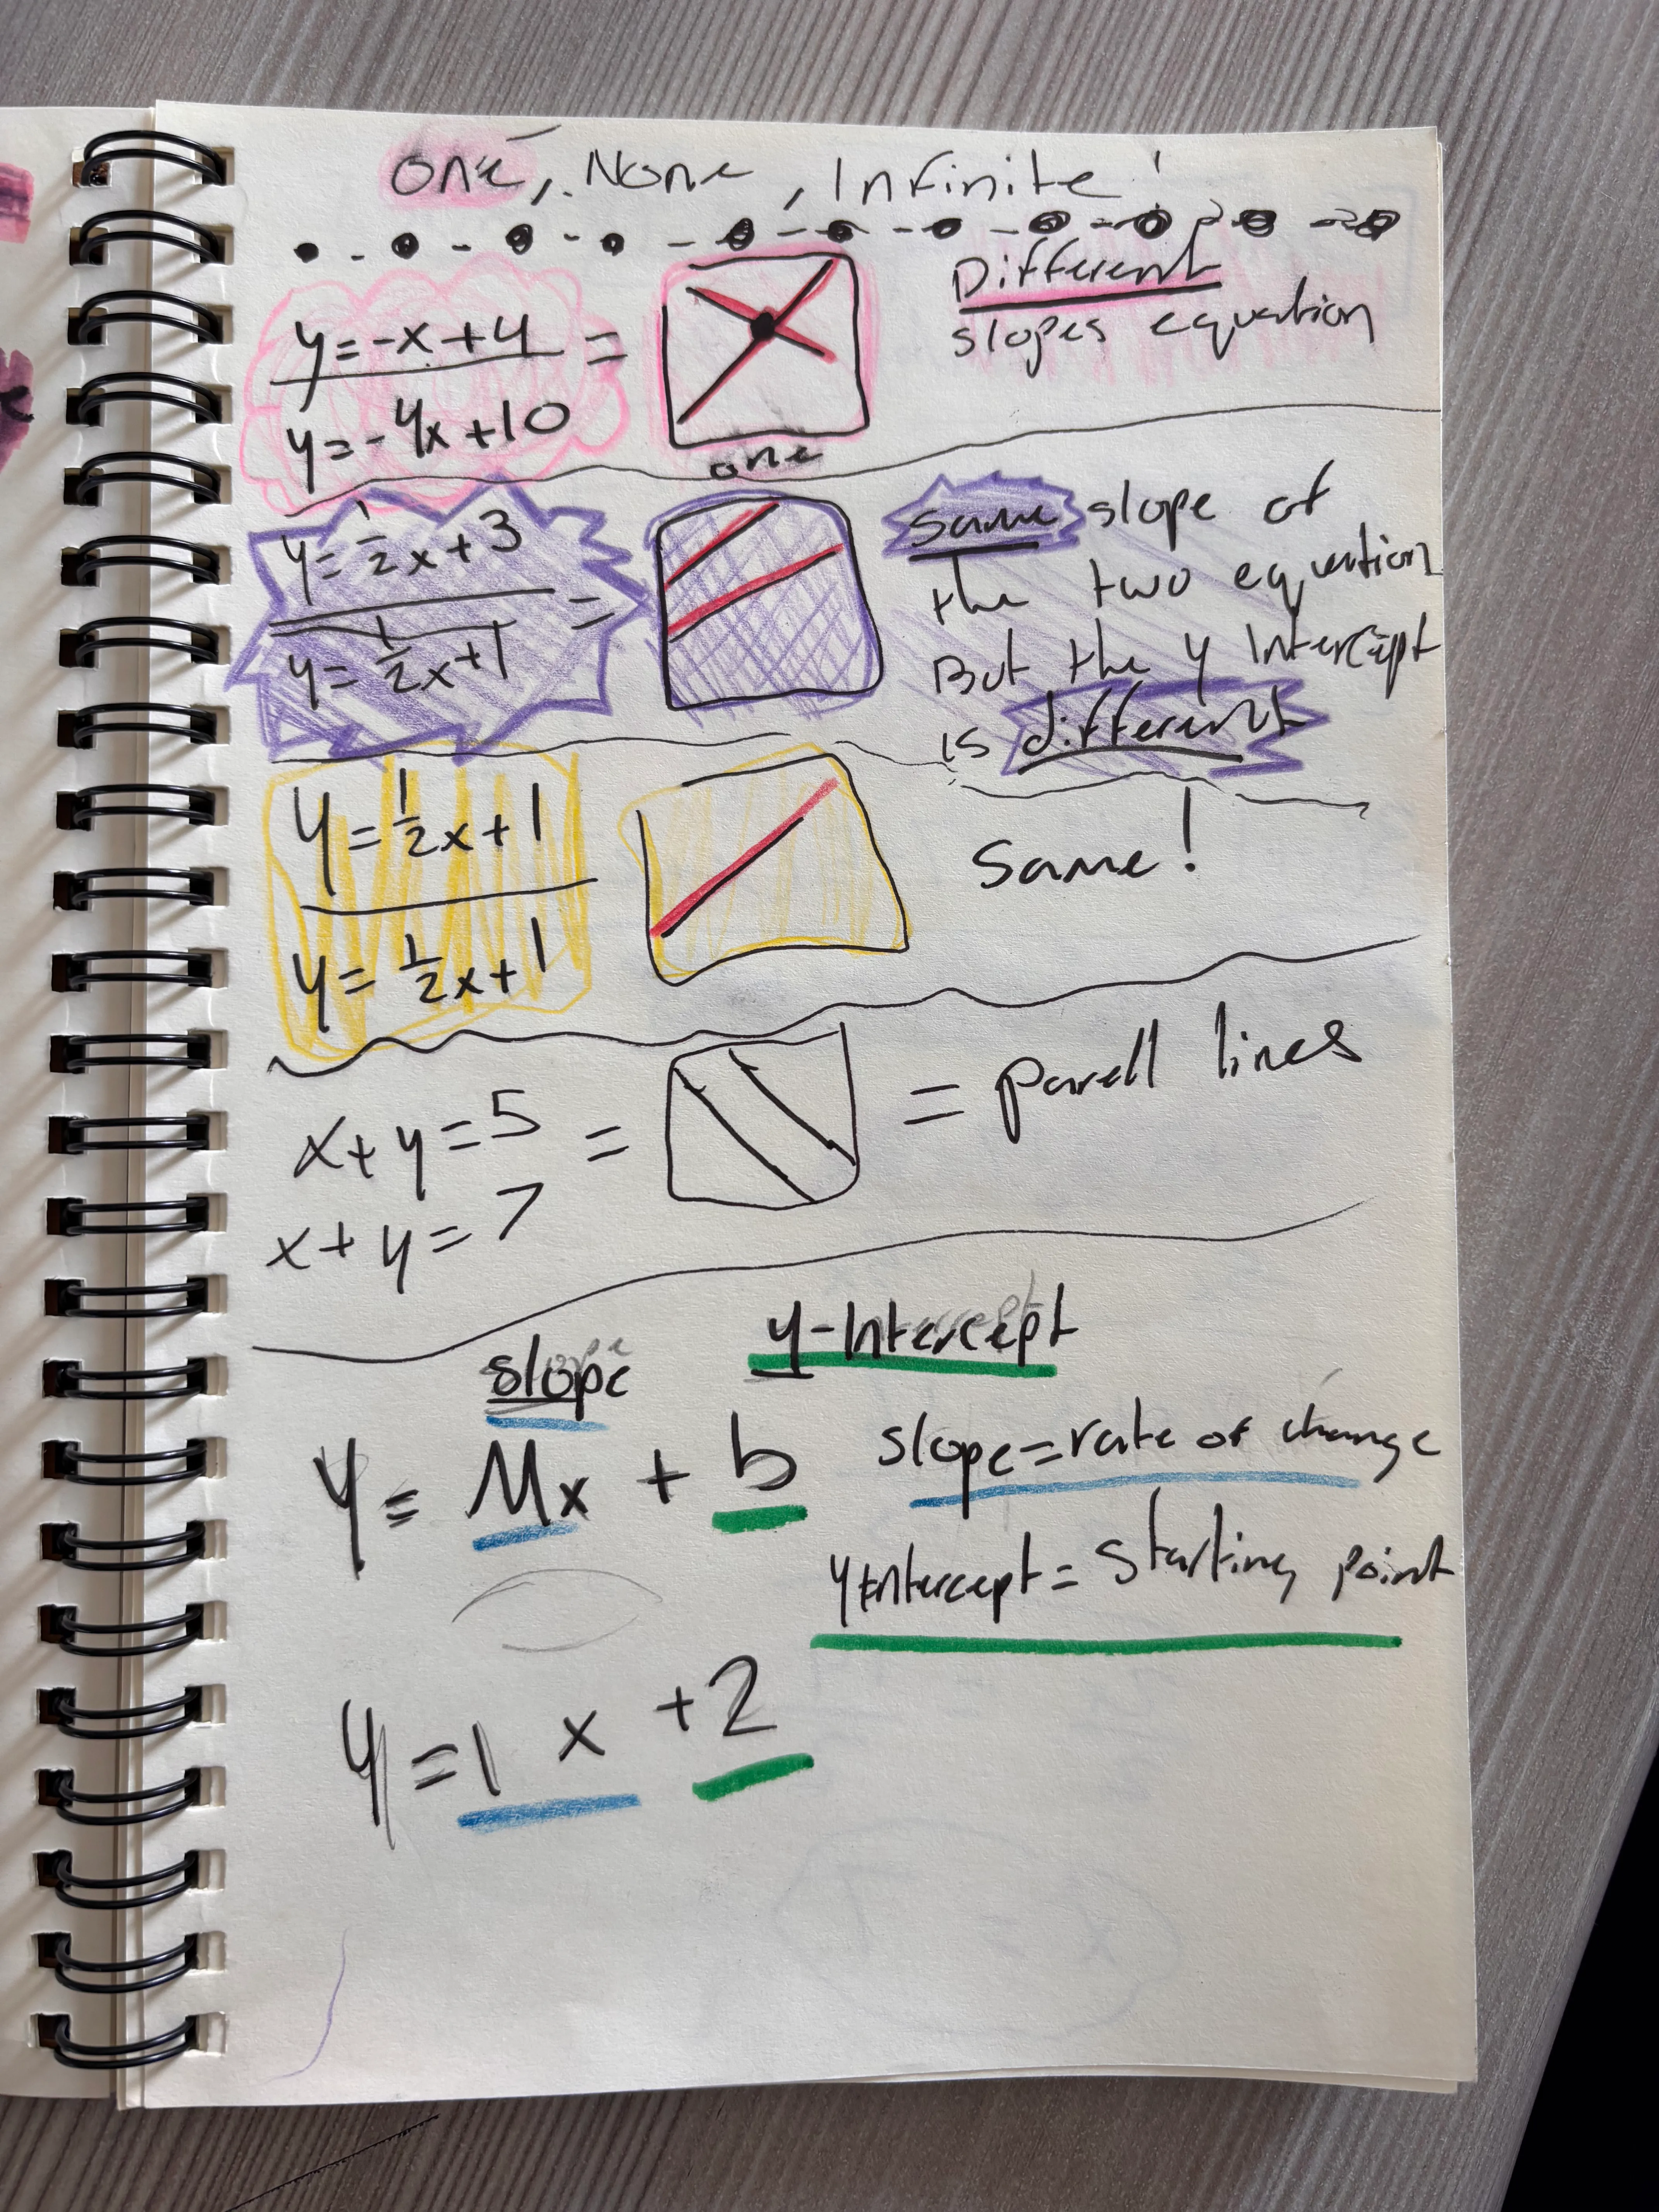 One, None, Infinite!
y=-x+4 =
y=-4x+10
one
Different
slopes equation
y=1/2x+3
=
y=1/2x+1
same slope of
the two equation
But the y Intercept
is different
y=1/2x+1
y=1/2x+1
Same!
x+y=5 =
x+y=7
= parell lines
slope
y-Intercept
y=Mx + b
slope=rate of change
yIntercept= Starting point
y=1x+2